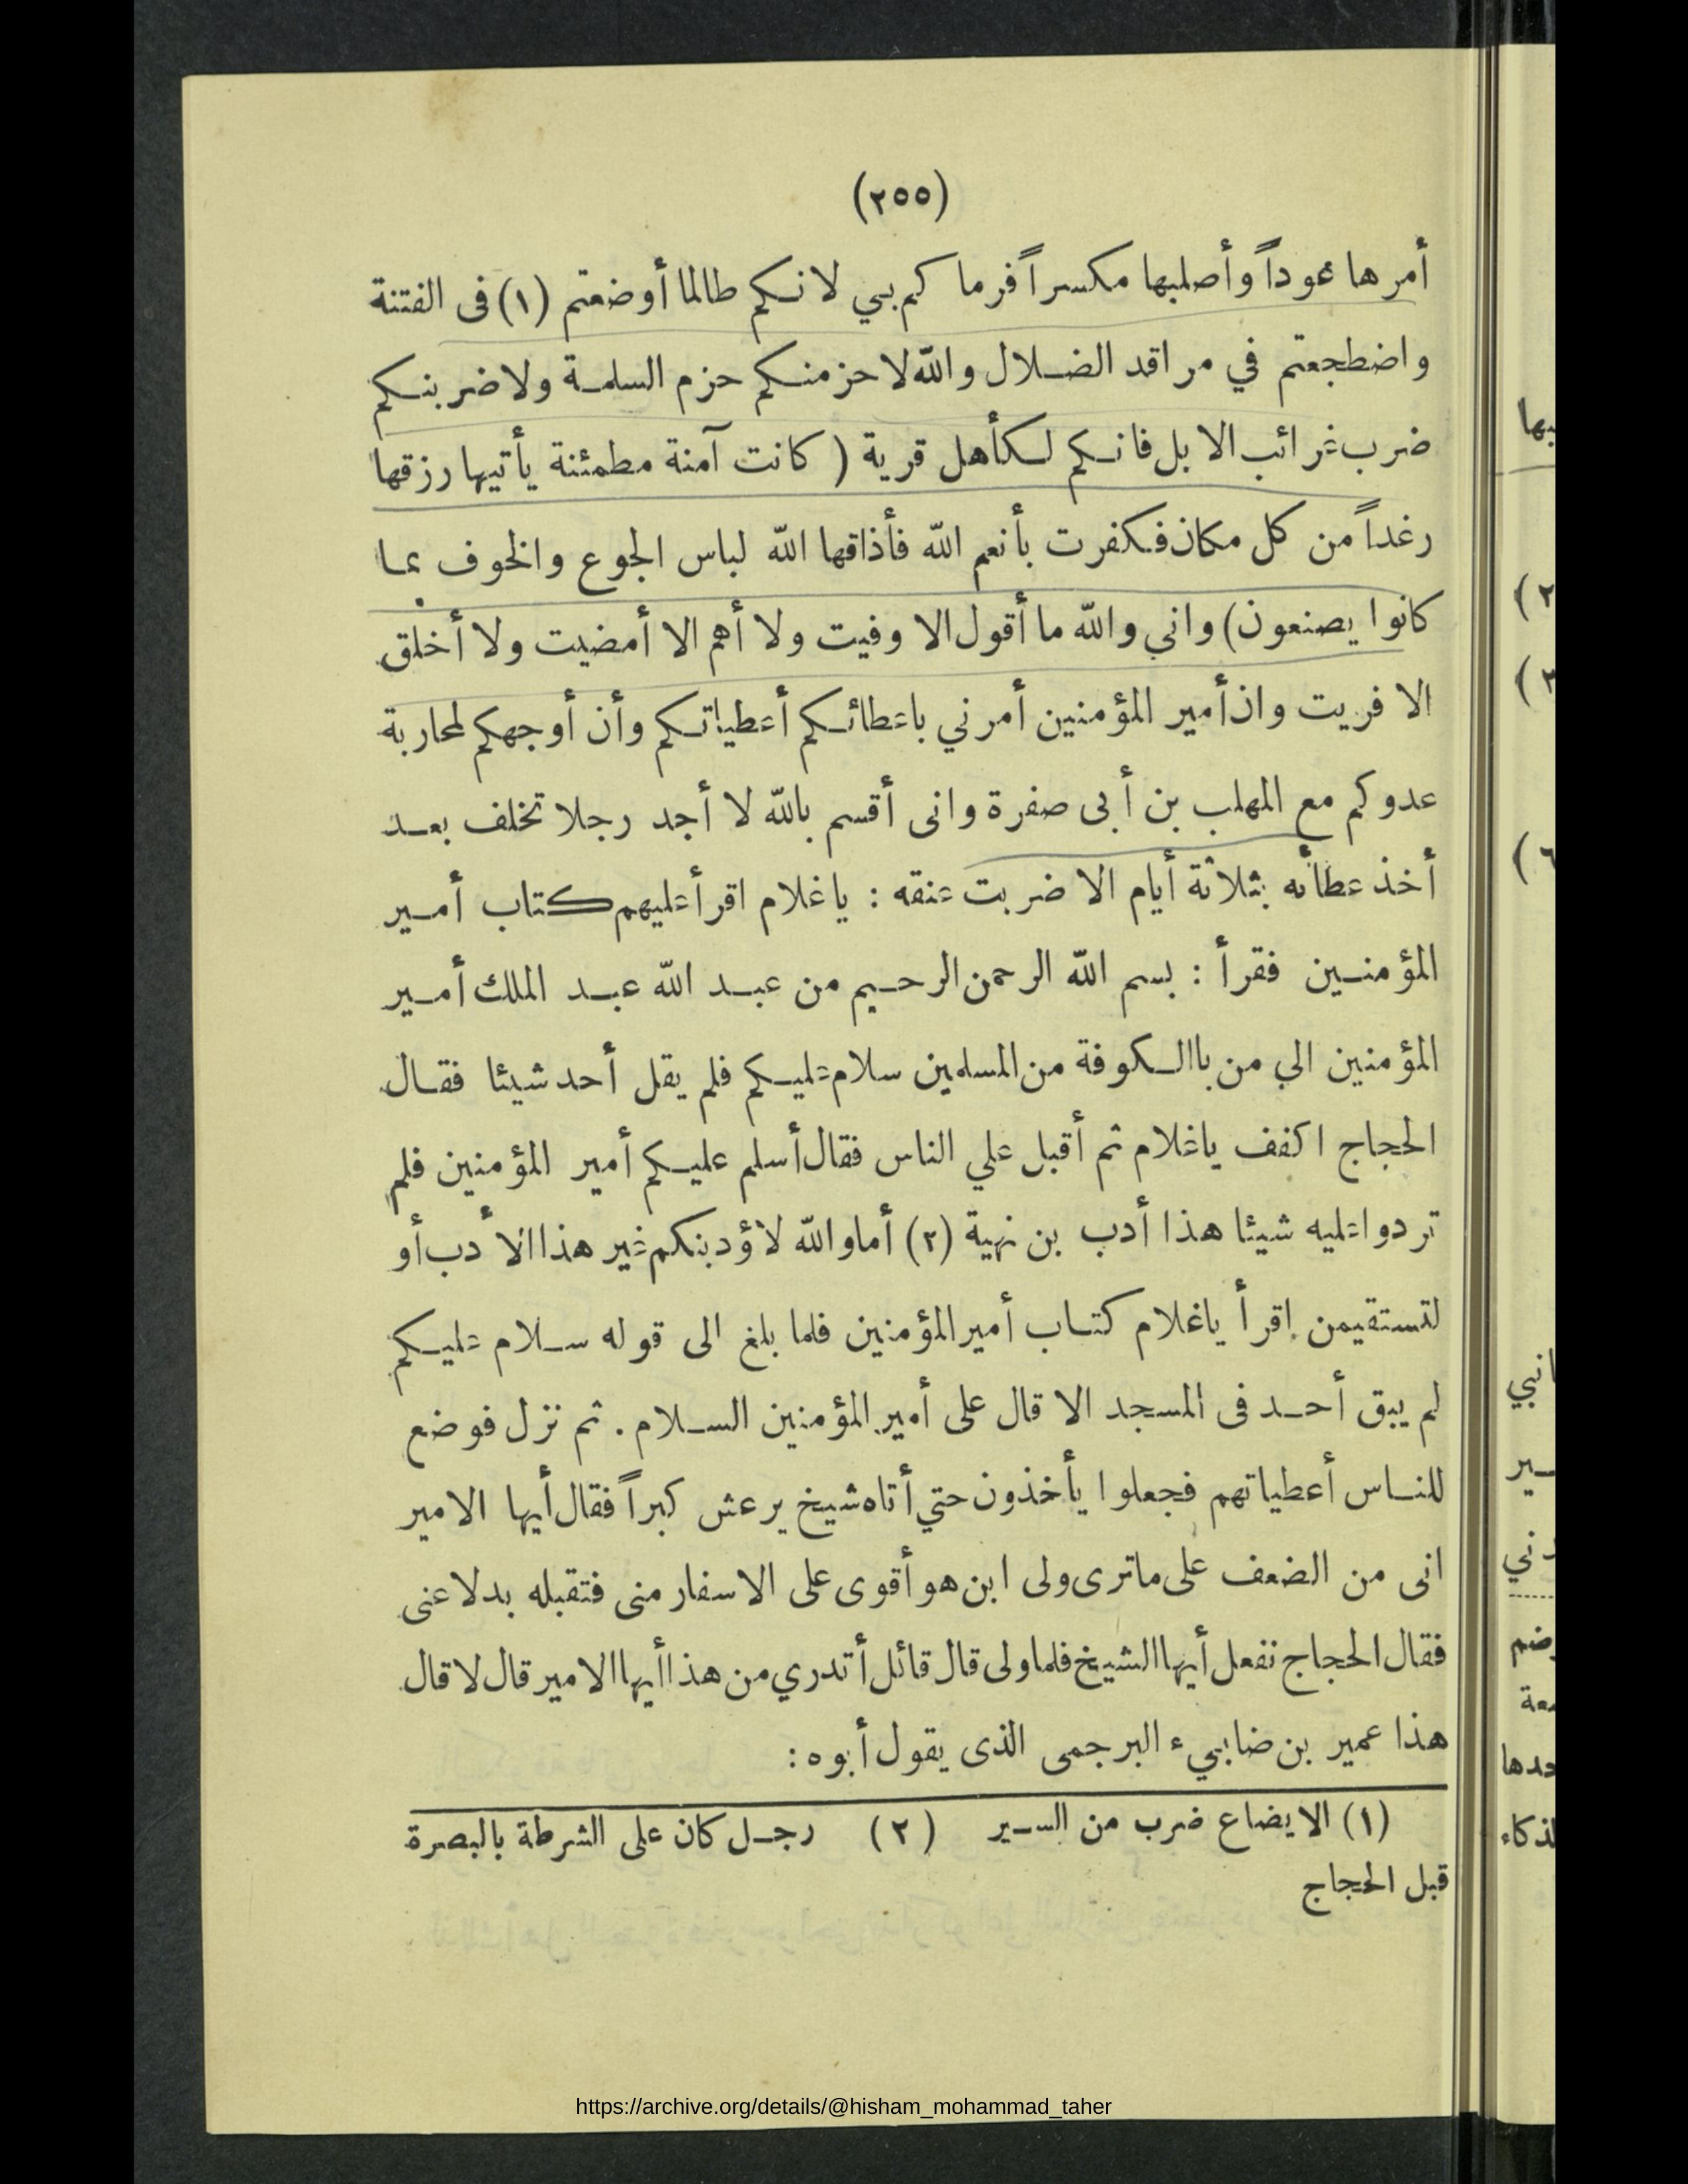 (٢٥٥)
أمرها عوداً وأصلبها مكسراً فرماكم بي لانكم طالما أوضعتم (١) فى الفتنة
واضطجعتم في مراقد الضلال والله لاحزمنكم حزم السلمة ولاضربنكم
ضرب غرائب الابل فانكم لكأهل قرية ( كانت آمنة مطمئنة يأتيها رزقها
رغداً من كل مكان فكفرت بأنعم الله فأذاقها الله لباس الجوع والخوف بما
كانوا يصنعون) واني والله ما أقول الا وفيت ولا أهم الا أمضيت ولا أخلق
الا فريت وان أمير المؤمنين أمرني باعطائكم أعطياتكم وأن أوجهكم لمحاربة
عدوكم مع المهلب بن أبى صفرة وانى أقسم بالله لا أجد رجلا تخلف بعد
أخذ عطائه بثلاثة أيام الا ضربت عنقه : ياغلام اقرأ عليهم كتاب أمير
المؤمنين فقرأ : بسم الله الرحمن الرحيم من عبد الله عبد الملك أمير
المؤمنين الي من باالكوفة من المسلمين سلام عليكم فلم يقل أحد شيئا فقال
الحجاج اكفف ياغلام ثم أقبل علي الناس فقال أسلم عليكم أمير المؤمنين فلم
تردوا عليه شيئا هذا أدب بن نهية (٢) أما والله لاؤدبنكم غير هذا الأدب أو
لتستقيمن اقرأ ياغلام كتاب أمير المؤمنين فلما بلغ الى قوله سلام عليكم
لم يبق أحد فى المسجد الا قال على أمير المؤمنين السلام . ثم نزل فوضع
للناس أعطياتهم فجعلوا يأخذون حتي أتاه شيخ يرعش كبراً فقال أيها الامير
انى من الضعف على ماترى ولى ابن هو أقوى على الاسفار منى فتقبله بدلا عنى
فقال الحجاج نفعل أيها الشيخ فلما ولى قال قائل أتدري من هذا أيها الامير قال لا قال
هذا عمير بن ضابيء البرجمى الذى يقول أبوه :
(١) الايضاع ضرب من السير (٢) رجل كان على الشرطة بالبصرة
قبل الحجاج
https://archive.org/details/@hisham_mohammad_taher